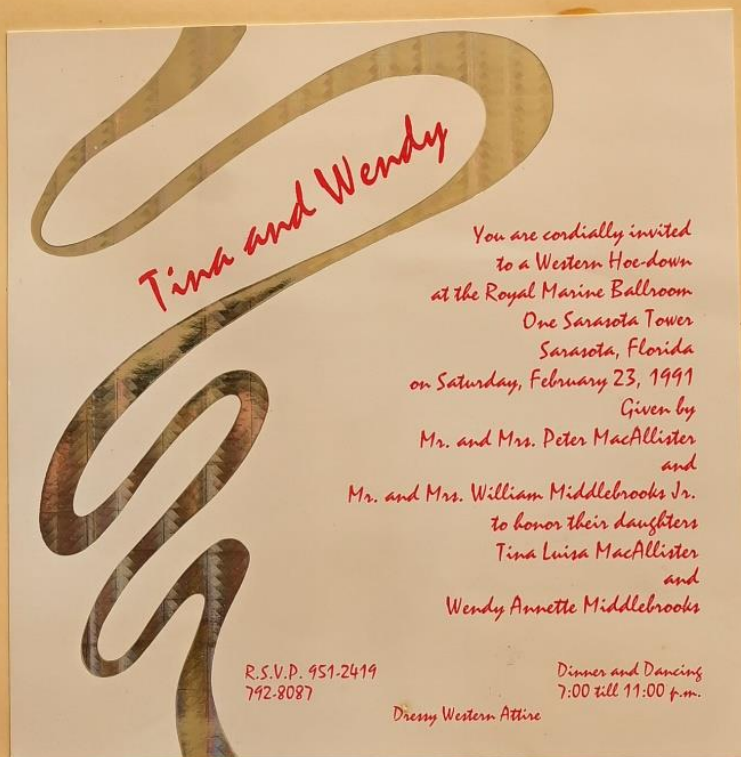 Tina and Wendy
You are cordially invited
to a Western Hoe-down
at the Royal Marine Ballroom
One Sarasota Tower
Sarasota, Florida
on Saturday, February 23, 1991
Given by
Mr. and Mrs. Peter MacAllister
and
Mr. and Mrs. William Middlebrooks Jr.
to honor their daughters
Tina Luisa MacAllister
and
Wendy Annette Middlebrooks
R.S.V.P. 951-2419
792-8087
Dinner and Dancing
7:00 till 11:00 p.m.
Dressy Western Attire